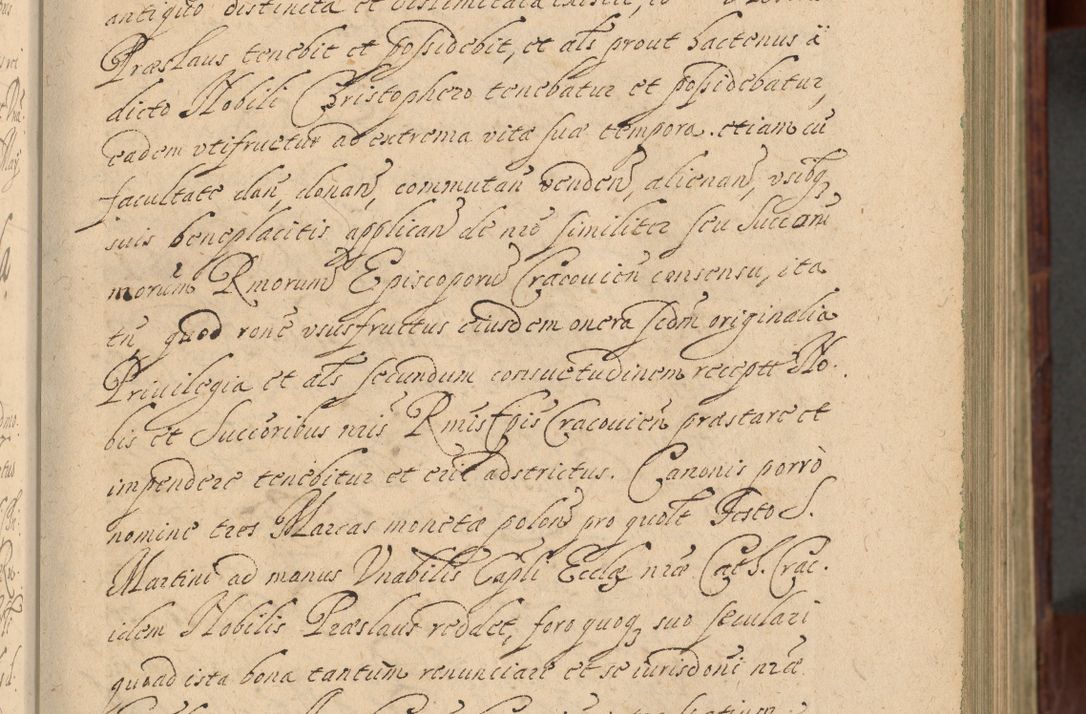 antiquo distincta et
Præslaus tenebit et possidebit, et als prout hactenus à
dicto Nobili Christophero tenebatur et possidebatur,
eadem vtifruetur ad extrema vitæ suæ tempora. etiam cũ
facultate dan̄, donan̄, commutan̄ venden̄, alienan̄, vsibq̨
suis beneplacitis applican̄ de nr̃o similiter seu Succam̄
morum̄ Rmorum̄ Episcoporum̄ Cracouien̄ consensu, ita
tn̄, quod rone vsusfructus eiusdem onera scdm̄ originalia
Priuilegia et als secundum consuetudinem receptt No.
bis et Successoribus nr̃is Rmis Epis Cracouien̄ præstare et
impendere tenebitur et erit adstrictus. Canonis porrò
nomine tres Marcas monetæ polon̄ pro quolt Festo S.
Martini ad manus Vnabilis Capli Ecclæ nr̃æ Cath. Crac.
idem Nobilis Præslaus reddet, foro quoq̨ suo seculari
quoad ista bona tantum renunciare et se iurisdoni nr̃æ